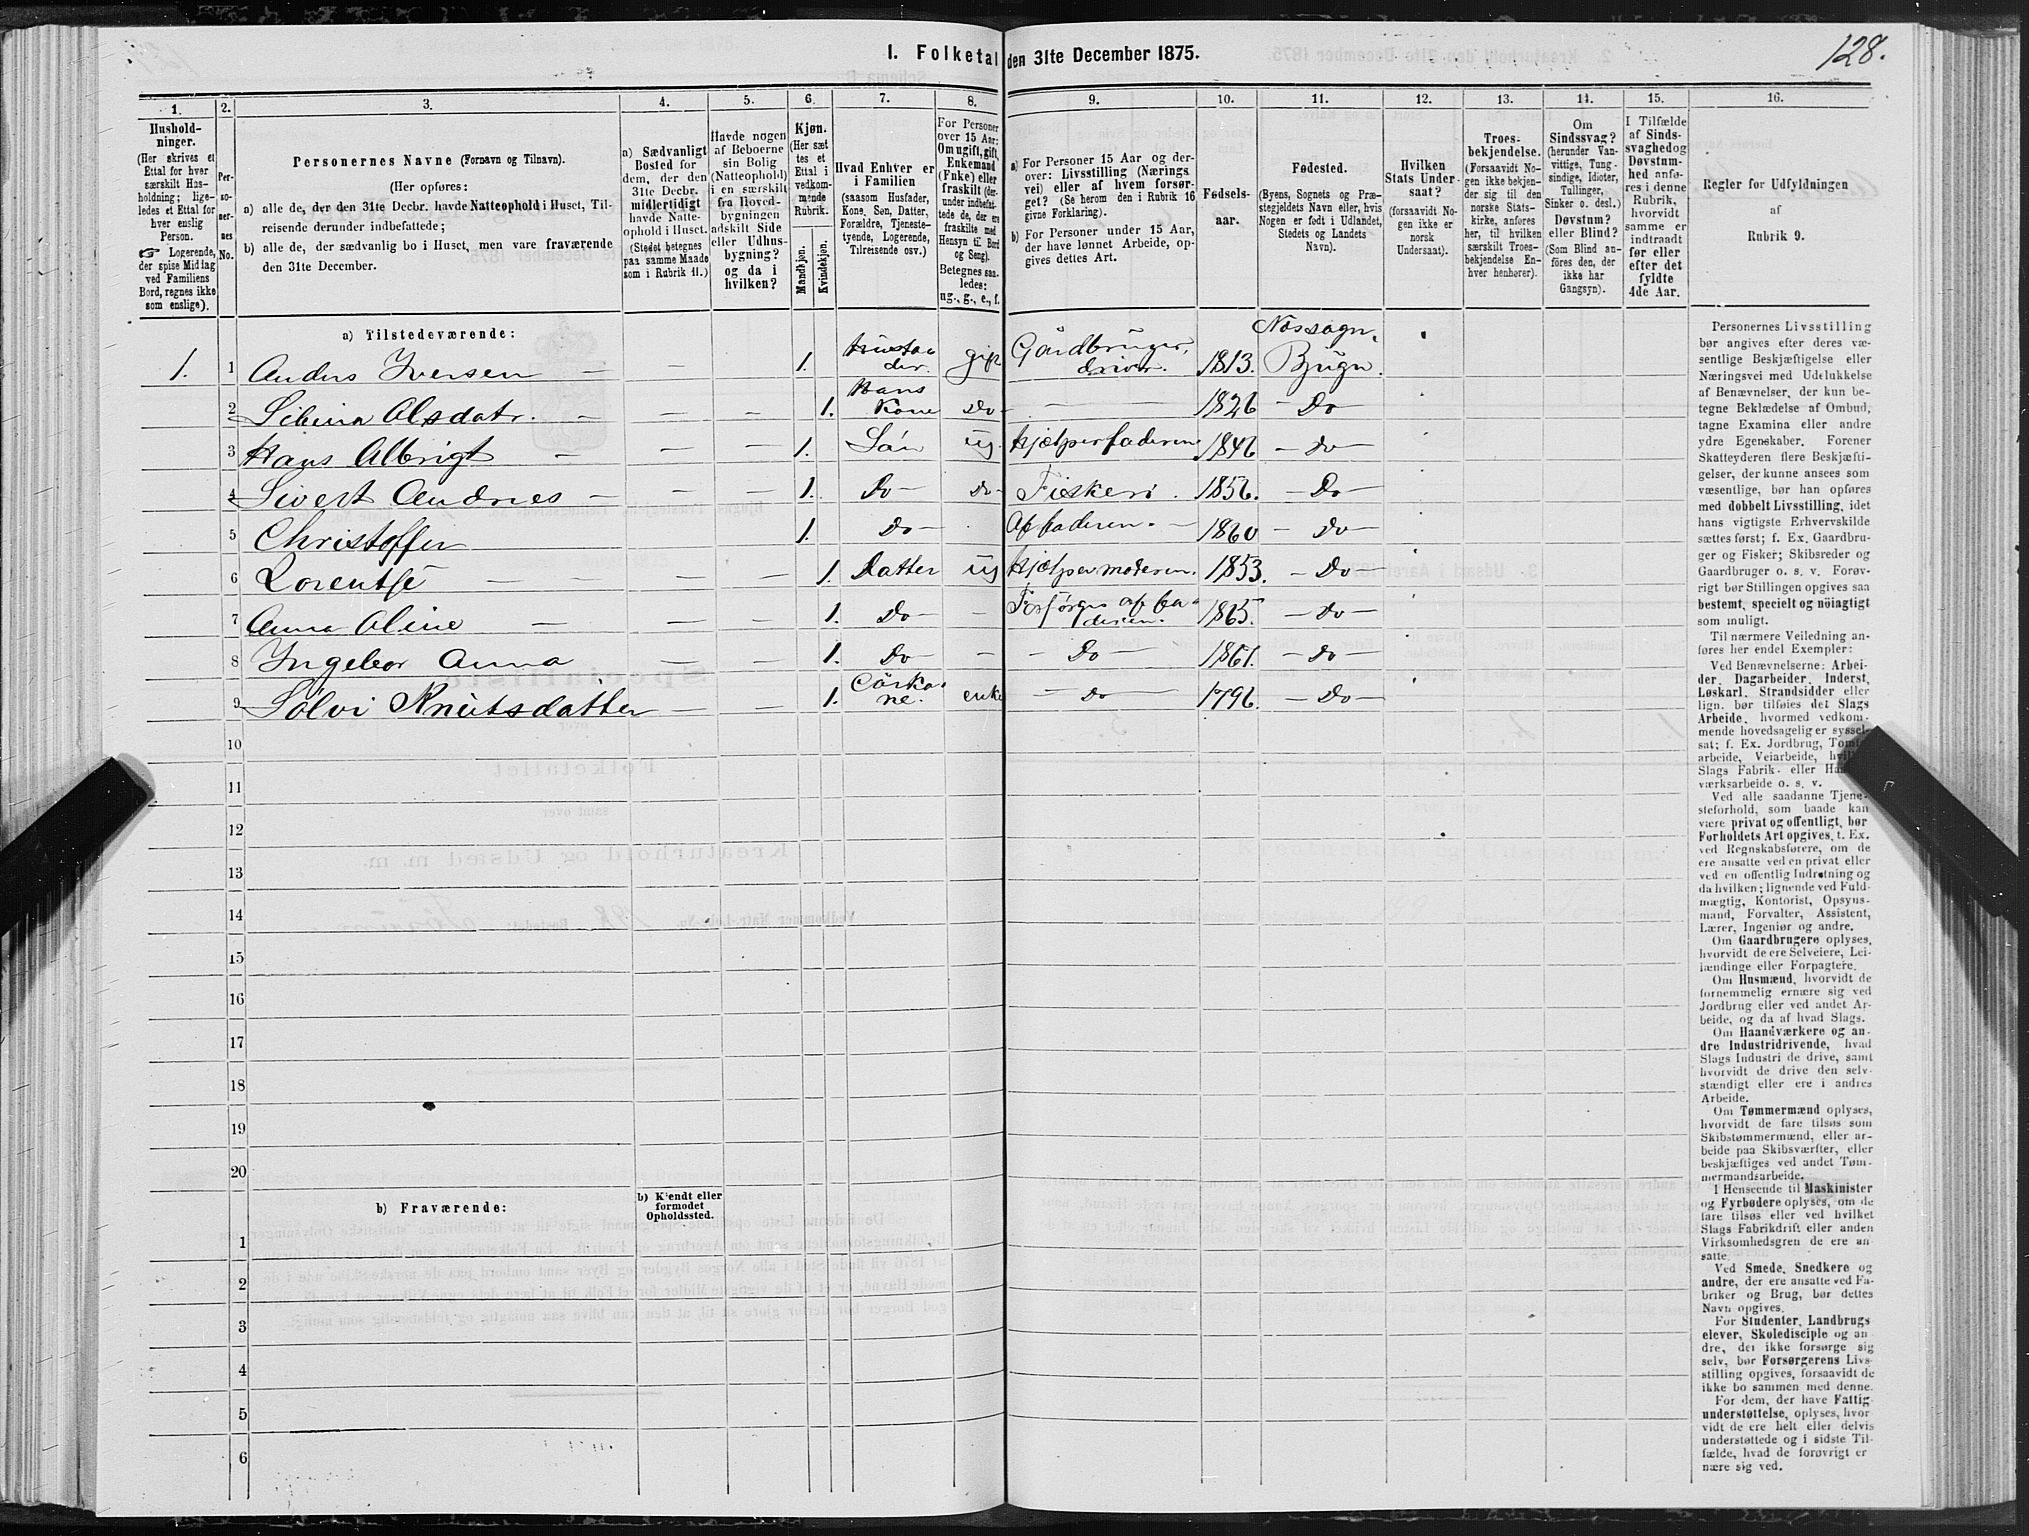 128.
1. Folketal den 31te December 1875.
1. 2. 3. 4. 5. 6. 7. 8. 9. 10. 11. 12. 13. 14. 15. 16.
Hushold-
ninger.
(Her skrives et
Ettal for hver
særskilt Hus-
holdning; lige-
ledes et Ettal for
hver enslig
Person.
☞ Logerende,
der spise Middag
ved Familiens
Bord, regnes ikke
som enslige).
Per-
so-
ner-
nes
No.
Personernes Navne (Fornavn og Tilnavn).
(Her opføres:
a) alle de, der den 31te Decbr. havde Natteophold i Huset, Til-
reisende derunder indbefattede;
b) alle de, der sædvanlig bo i Huset, men vare fraværende
den 31te December.
a) Sædvanligt
Bosted for
dem, der den
31te Decbr.
midlertidigt
havde Natte-
ophold i Huset.
(Stedet betegnes
paa samme Maade
som i Rubrik 11.)
Havde nogen
af Beboerne
sin Bolig
(Natteophold)
i en særskilt
fra Hoved-
bygningen
adskilt Side
eller Udhus-
bygning?
og da i
hvilken?
Kjøn.
(Her sæt
tes et
Ettal i
vedkom-
mende
Rubrik.
Mandkjøn.
Kvindekjøn.
Hvad Enhver er
i Familien
(saasom Husfader,
Kone, Søn, Datter,
Forældre, Tjeneste-
tyende, Logerende,
Tilreisende osv.)
For Personer
over 15 Aar:
Om ugift, gift,
Enkemand
(Enke) eller
fraskilt (der-
under indbefat-
tede de, der ere
fraskilte med
Hensyn til Bord
og Seng).
Betegnes saa-
ledes:
ug., g., e., f.
a) For Personer 15 Aar og der-
over: Livsstilling (Nærings
vei) eller af hvem forsør-
get? (Se herom den i Rubrik 16
givne Forklaring).
b) For Personer under 15 Aar,
der have lønnet Arbeide, op-
gives dettes Art.
Fødsels-
aar.
Fødested.
(Byens, Sognets og Præ-
stegjeldets Navn eller, hvis
Nogen er født i Udlandet,
Stedets og Landets
Navn).
Hvilken
Stats Under-
saat?
(forsaavidt No-
gen ikke er
norsk
Undersaat).
Troes-
bekjendelse.
(Forsaavidt No-
gen ikke bekjen-
der sig til den
norske Stats-
kirke, anføres
her, til hvilken
særskilt Troes-
bekjendelse En-
hver henhører).
Om
Sindssvag?
(herunder Van-
vittige, Tung-
sindige, Idioter,
Tullinger,
Sinker o. desl.)
Døvstum?
eller Blind?
(Som Blind an-
føres den, der
ikke har
Gangsyn).
I Tilfælde
af Sinds-
svaghed og
Døvstum-
hed anfø-
res i denne
Rubrik,
hvorvidt
samme er
indtraadt
før eller
efter det
fyldte
4de Aar.
Regler for Udfyldningen
af
Rubrik 9.
a) Tilstedeværende:
1. 1 Anders Iversen — — 1. Husfa-
der. gift Gårdbruger, driver. 1813. Næssogn, Bjugn.
2 Silina Olsdatr. — — — 1. Hans Kone Do — — 1826 — Do —
3 Hans Albrigt — — — 1. Sön ug. Hjelper faderen 1846 — Do —
4 Sivert Andreas — — — 1. Do — Do — Fiskeri. 1856. — Do —
5 Christoffer 1. Do — Af faderen. — 1860 — Do —
6 Lorentse — — — 1. Datter ug Hjelper moderen. 1853. — Do —
7 Anna Oline — — — 1. Do — — Forsörges af fa-
deren. 1865. — Do —
8 Ingebor Anna — — 1. Do — — — Do — 1867. — Do —
9 Sölvi Knutsdatter — — 1. enke — Do — 1796. — Do —
10
11
12
13
14
15
16
17
18
19
20
b) Fraværende:
b) Kjendt eller
formodet
Opholdssted.
1
2
3
4
5
6
Personernes Livsstilling
bør angives efter deres væ-
sentlige Beskjæftigelse eller
Næringsvei med Udelukkelse
af Benævnelser, der kun be-
tegne Beklædelse af Ombud,
tagne Examina eller andre
ydre Egenskaber. Forener
Skatteyderen flere Beskjæfti-
gelser, der kunne ansees som
væsentlige, bør han opføres
med dobbelt Livsstilling, idet
hans vigtigste Erhvervskilde
sættes først; f. Ex. Gaardbru-
ger og Fisker; Skibsreder og
Gaardbruger o. s. v. Forøv-
rigt bør Stillingen opgives saa
bestemt, specielt og nöiagtigt
som muligt.
Til nærmere Veiledning an-
føres her endel Exempler:
Ved Benævnelserne: Arbei-
der, Dagarbeider, Inderst,
Løskarl, Strandsidder eller
lign. bør tilføies det Slags
Arbeide, hvormed vedkom-
mende hovedsagelig er syssel-
sat; f. Ex. Jordbrug, Tomte-
arbeide, Veiarbeide, hvilket
Slags Fabrik- eller Haand-
værksarbeide o. s. v.
Ved alle saadanne Tjene-
steforhold, som baade kan
være privat og offentligt, bør
Forholdets Art opgives, t. Ex.
ved Regnskabsførere, om de
ere ansatte ved en privat eller
ved en offentlig Indretning og
da hvilken; lignende ved Fuld-
mægtig, Kontorist, Opsyns-
mand, Forvalter, Assistent,
Lærer, Ingeniør og andre.
Om Gaardbrugere oplyses,
hvorvidt de ere Selveiere, Lei-
lændinge eller Forpagtere.
Om Husmænd, hvorvidt de
fornemmelig ernære sig ved
Jordbrug eller ved andet Ar-
beide, og da af hvad Slags.
Om Haandværkere og an-
dre Industridrivende, hvad
Slags Industri de drive, samt
hvorvidt de drive den selv-
stændigt eller ere i andres
Arbeide.
Om Tømmermænd oplyses,
hvorvidt de fare tilsøs som
Skibstømmermænd, eller ar-
beide paa Skibsværfter, eller
beskjæftiges ved andet Tøm-
mermandsarbeide.
I Henseende til Maskinister
og Fyrbødere oplyses, om de
fare tilsøs eller ved hvilket
Slags Fabrikdrift eller anden
Virksomhedsgren de ere an-
satte.
Ved Smede, Snedkere og
andre, der ere ansatte ved Fa-
briker og Brug, bør dettes
Navn opgives.
For Studenter, Landbrugs
elever, Skoledisciple og an-
dre, der ikke forsørge sig
selv, bør Forsørgerens Livs-
stilling opgives, forsaavidt de
ikke bo sammen med denne.
For dem, der have Fattig-
understøttelse, oplyses, hvor
vidt de ere helt eller delvis
understøttede og i sidste Til-
fælde, hvad de forøvrigt er
nære sig ved.